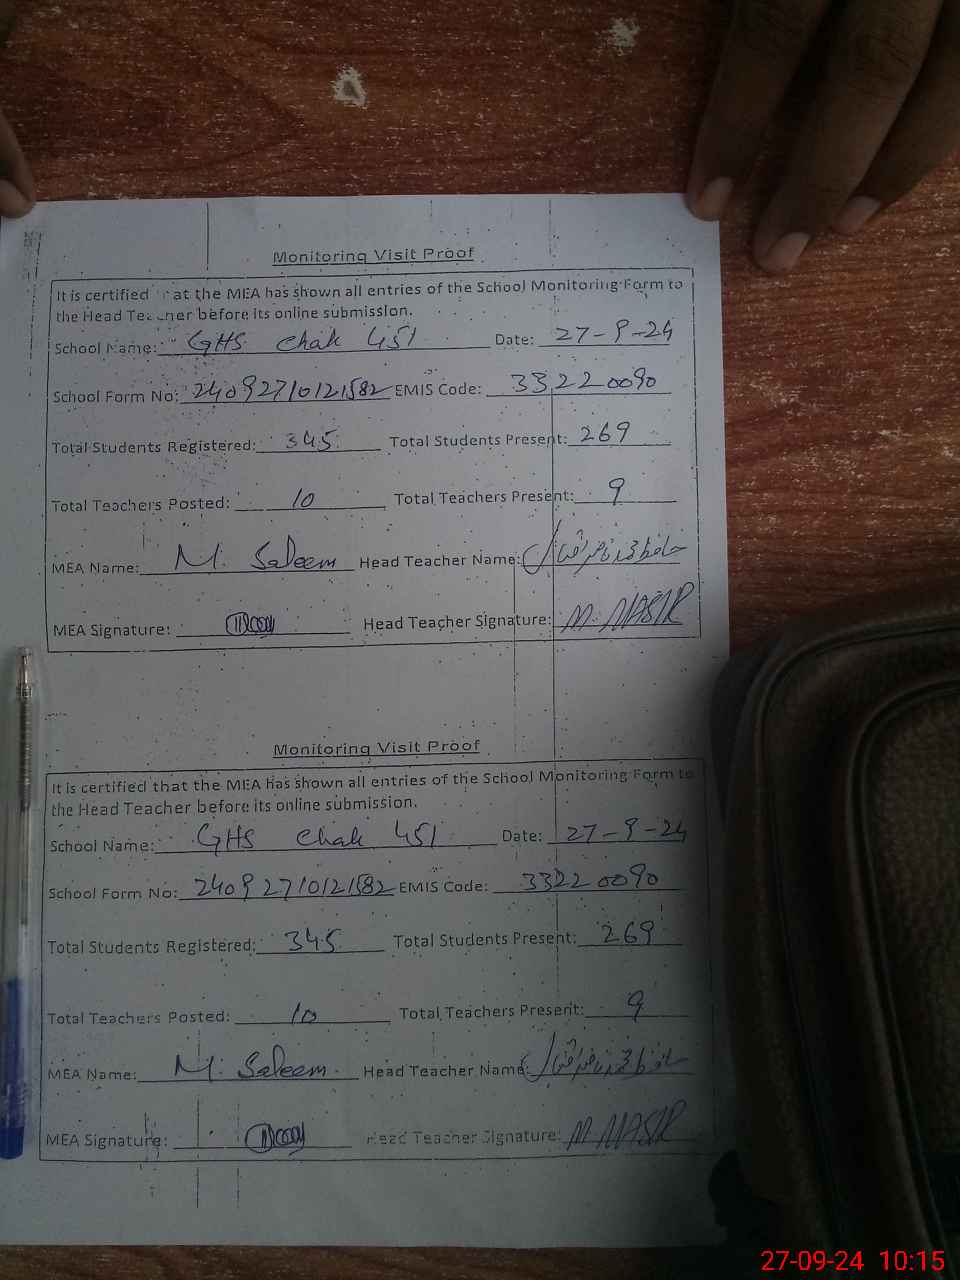 Monitoring Visit Proof
It is certified that the MEA has shown all entries of the School Monitoring Form to
the Head Teacher before its online submission.
School Name: GHS Chak 451 Date: 27-9-24
School Form No: 24092710121582 EMIS Code: 33220090
Total Students Registered: 345 Total Students Present: 269
Total Teachers Posted: 10 Total Teachers Present: 9
MEA Name: M. Saleem Head Teacher Name: حافظ محمد ناصر اقبال
MEA Signature: Head Teacher Signature: M. NASIR
Monitoring Visit Proof
It is certified that the MEA has shown all entries of the School Monitoring Form to
the Head Teacher before its online submission.
School Name: GHS Chak 451 Date: 27-9-24
School Form No: 24092710121582 EMIS Code: 33220090
Total Students Registered: 345 Total Students Present: 269
Total Teachers Posted: 10 Total Teachers Present: 9
MEA Name: M. Saleem Head Teacher Name: حافظ محمد ناصر اقبال
MEA Signature: Head Teacher Signature: M NASIR
27-09-24 10:15